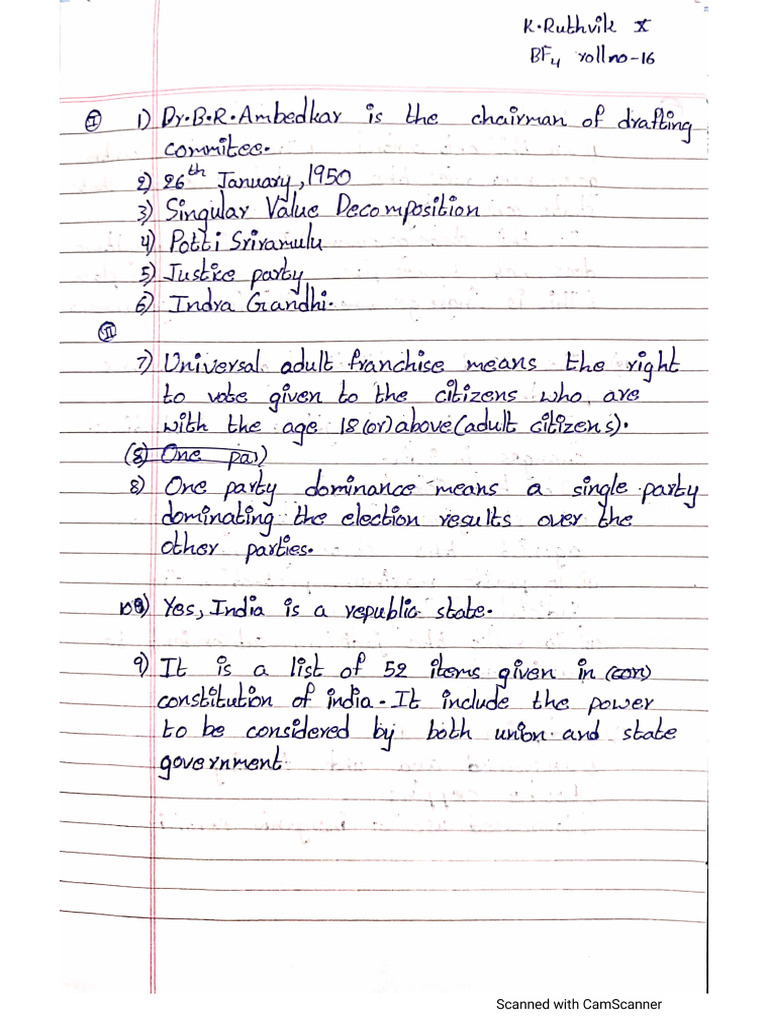 K.Ruthvik X
BF4 roll no-16
I 1) Dr.B.R.Ambedkar is the chairman of drafting
commitee.
2) 26th January, 1950
3) Singular Value Decomposition
4) Potti Sriramulu
5) Justice party
6) Indra Gandhi.
II
7) Universal adult franchise means the right
to vote given to the citizens who are
with the age 18 (or) above (adult citizens).
(8) One par)
8) One party dominance means a single party
dominating the election results over the
other parties.
10) Yes, India is a republic state.
9) It is a list of 52 items given in (con)
constitution of india. It include the power
to be considered by both union and state
government
Scanned with CamScanner